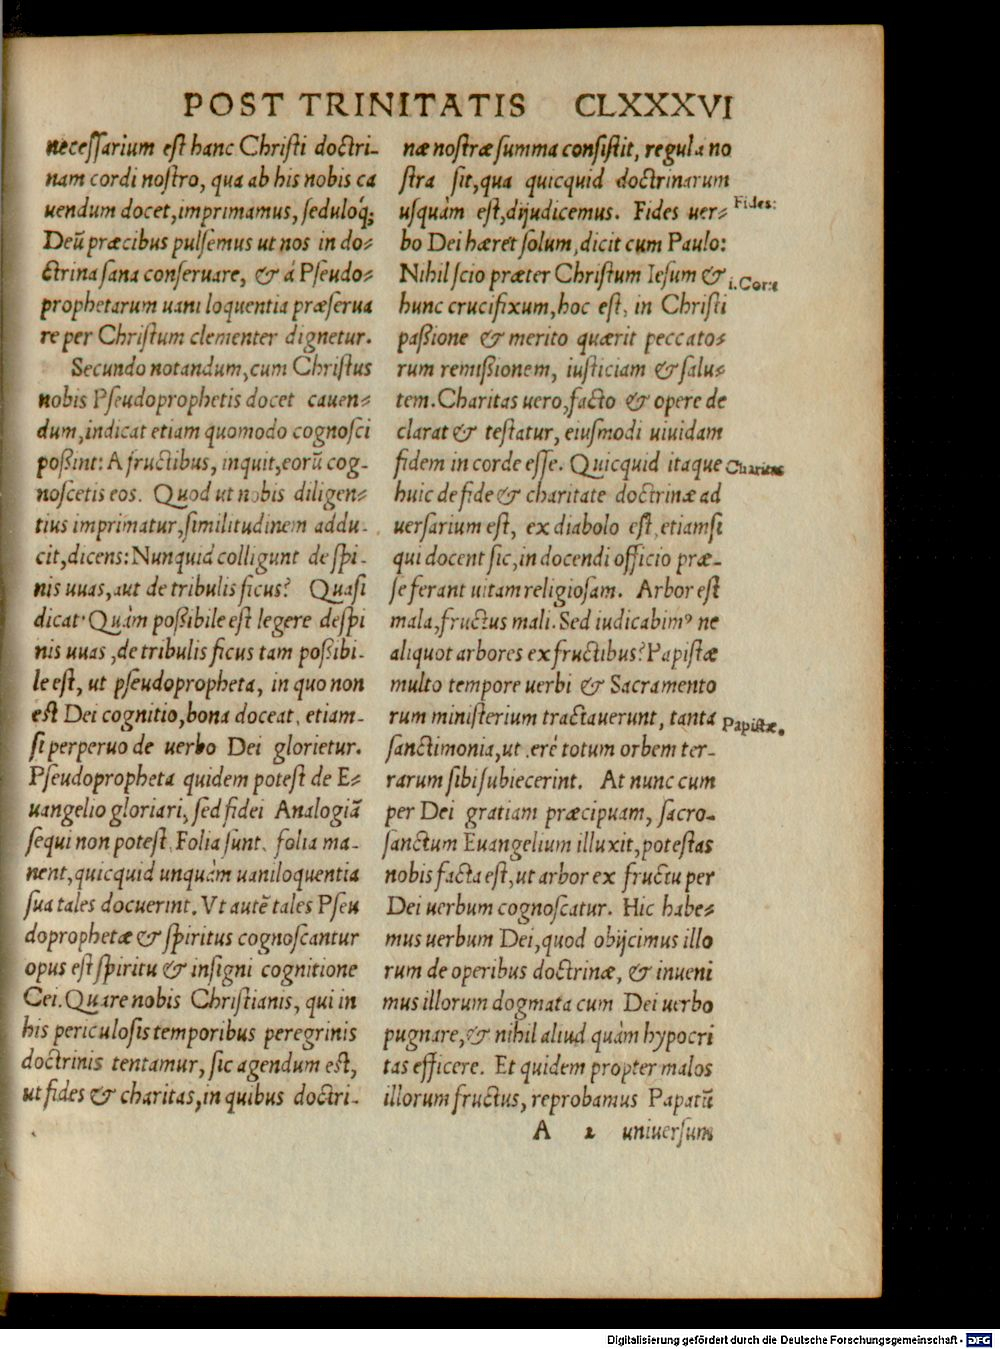 POST TRINITATIS CLXXXVI
necessarium est hanc Christi doctri-
nam cordi nostro, qua ab his nobis ca
uendum docet, imprimamus, seduloq́;
Deū præcibus pulsemus ut nos in do-
ctrina sana conseruare, & á Pseudo-
prophetarum uani loquentia præserua
re per Christum clementer dignetur.
Secundo notandum, cum Christus
nobis Pseudoprophetis docet cauen-
dum, indicat etiam quomodo cognosci
poßint: A fructibus, inquit, eorū cog-
noscetis eos. Quod ut nobis diligen-
tius imprimatur, similitudinem addu-
cit, dicens: Nunquid colligunt de spi-
nis uuas, aut de tribulis ficus? Quasi
dicat· Quàm poßibile est legere de spi
nis uuas, de tribulis ficus tam poßibi-
le est, ut pseudopropheta, in quo non
est Dei cognitio, bona doceat, etiam-
si perperuo de uerbo Dei glorietur.
Pseudopropheta quidem potest de E-
uangelio gloriari, sed fidei Analogiā
sequi non potest. Folia sunt, folia ma-
nent, quicquid unquàm uaniloquentia
sua tales docuerint. Vt autē tales Pseu
doprophetæ & spiritus cognoscantur
opus est spiritu & insigni cognitione
Cei. Quare nobis Christianis, qui in
his periculosis temporibus peregrinis
doctrinis tentamur, sic agendum est,
ut fides & charitas, in quibus doctri-
næ nostræ summa consistit, regula no
stra sit, qua quicquid doctrinarum
usquàm est, dijudicemus. Fides uer-
bo Dei hæret solum, dicit cum Paulo:
Nihil scio præter Christum Iesum &
hunc crucifixum, hoc est, in Christi
paßione & merito quærit peccato-
rum remißionem, iusticiam & salu-
tem. Charitas uero, facto & opere de
clarat & testatur, eiusmodi uiuidam
fidem in corde esse. Quicquid itaque
huic de fide & charitate doctrinæ ad
uersarium est, ex diabolo est, etiamsi
qui docent sic, in docendi officio præ-
se ferant uitam religiosam. Arbor est
mala, fructus mali. Sed iudicabimꝰ ne
aliquot arbores ex fructibus? Papistæ
multo tempore uerbi & Sacramento
rum ministerium tractauerunt, tanta
sanctimonia, ut ferè totum orbem ter-
rarum sibi subiecerint. At nunc cum
per Dei gratiam præcipuam, sacro-
sanctum Euangelium illuxit, potestas
nobis facta est, ut arbor ex fructu per
Dei uerbum cognoscatur. Hic habe-
mus uerbum Dei, quod obijcimus illo
rum de operibus doctrinæ, & inueni
mus illorum dogmata cum Dei uerbo
pugnare, & nihil aliud quàm hypocri
tas efficere. Et quidem propter malos
illorum fructus, reprobamus Papatū
A 2 uniuersum
Fides:
1.Cor:2
Charitas
Papistæ.
Digitalisierung gefördert durch die Deutsche Forschungsgemeinschaft - DFG